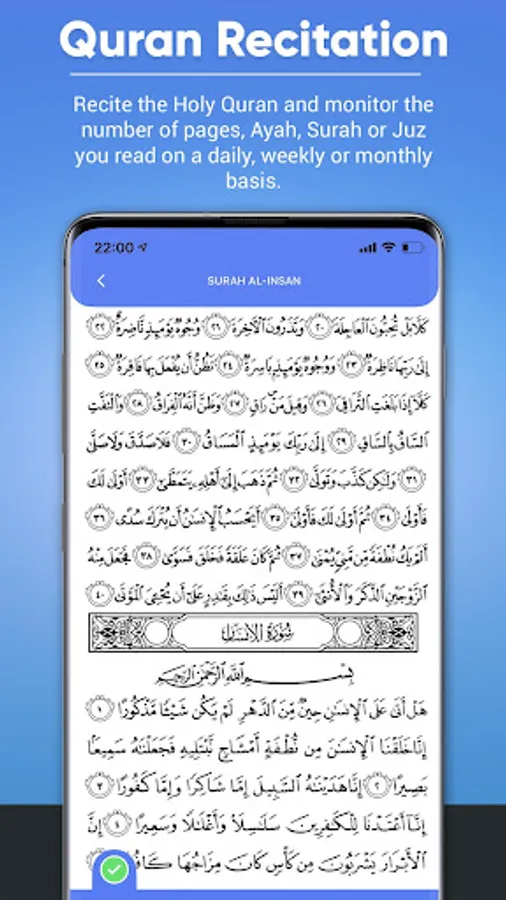 Quran Recitation
Recite the Holy Quran and monitor the
number of pages, Ayah, Surah or Juz
you read on a daily, weekly or monthly
basis.
22:00
SURAH AL-INSAN
كَلَّا بَلْ تُحِبُّونَ ٱلْعَاجِلَةَ ٢٠ وَتَذَرُونَ ٱلْأَخِرَةَ ٢١ وُجُوهٌ يَوْمَئِذٍ نَّاضِرَةٌ ٢٢
إِلَىٰ رَبِّهَا نَاظِرَةٌ ٢٣ وَوُجُوهٌ يَوْمَئِذٍ بَاسِرَةٌ ٢٤ تَظُنُّ أَن يُفْعَلَ بِهَا فَاقِرَةٌ ٢٥
كَلَّا إِذَا بَلَغَتِ ٱلتَّرَاقِيَ ٢٦ وَقِيلَ مَنْ رَاقٍ ٢٧ وَظَنَّ أَنَّهُ ٱلْفِرَاقُ ٢٨ وَٱلْتَفَّتِ
ٱلسَّاقُ بِٱلسَّاقِ ٢٩ إِلَىٰ رَبِّكَ يَوْمَئِذٍ ٱلْمَسَاقُ ٣٠ فَلَا صَدَّقَ وَلَا صَلَّىٰ
٣١ وَلَٰكِن كَذَّبَ وَتَوَلَّىٰ ٣٢ ثُمَّ ذَهَبَ إِلَىٰ أَهْلِهِ يَتَمَطَّىٰ ٣٣ أَوْلَىٰ لَكَ
فَأَوْلَىٰ ٣٤ ثُمَّ أَوْلَىٰ لَكَ فَأَوْلَىٰ ٣٥ أَيَحْسَبُ ٱلْإِنسَٰنُ أَن يُتْرَكَ سُدًى ٣٦
أَلَمْ يَكُ نُطْفَةً مِّن مَّنِيٍّ يُمْنَىٰ ٣٧ ثُمَّ كَانَ عَلَقَةً فَخَلَقَ فَسَوَّىٰ ٣٨ فَجَعَلَ مِنْهُ
ٱلزَّوْجَيْنِ ٱلذَّكَرَ وَٱلْأُنثَىٰ ٣٩ أَلَيْسَ ذَٰلِكَ بِقَٰدِرٍ عَلَىٰ أَن يُحْـِۧىَ ٱلْمَوْتَىٰ ٤٠
سُورَةُ الإِنسَان
بِسْمِ ٱللَّهِ ٱلرَّحْمَٰنِ ٱلرَّحِيمِ
هَلْ أَتَىٰ عَلَى ٱلْإِنسَٰنِ حِينٌ مِّنَ ٱلدَّهْرِ لَمْ يَكُن شَيْـًٔا مَّذْكُورًا ١
إِنَّا خَلَقْنَا ٱلْإِنسَٰنَ مِن نُّطْفَةٍ أَمْشَاجٍ نَّبْتَلِيهِ فَجَعَلْنَٰهُ سَمِيعًا
بَصِيرًا ٢ إِنَّا هَدَيْنَٰهُ ٱلسَّبِيلَ إِمَّا شَاكِرًا وَإِمَّا كَفُورًا ٣
إِنَّآ أَعْتَدْنَا لِلْكَٰفِرِينَ سَلَٰسِلَا۟ وَأَغْلَٰلًا وَسَعِيرًا ٤ إِنَّ
ٱلْأَبْرَارَ يَشْرَبُونَ مِن كَأْسٍ كَانَ مِزَاجُهَا